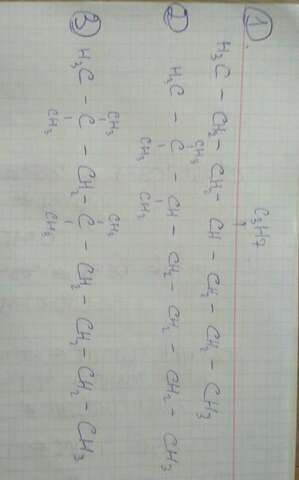 1) C₃H₇
H₃C - CH₂ - CH₂ - CH - CH₂ - CH₂ - CH₃
CH₃
2) H₃C - C - CH - CH₂ - CH₂ - CH₂ - CH₃
CH₃ CH₃
CH₃ CH₃
3) H₃C - C - CH₂ - C - CH₂ - CH₂ - CH₂ - CH₃
CH₃ CH₃